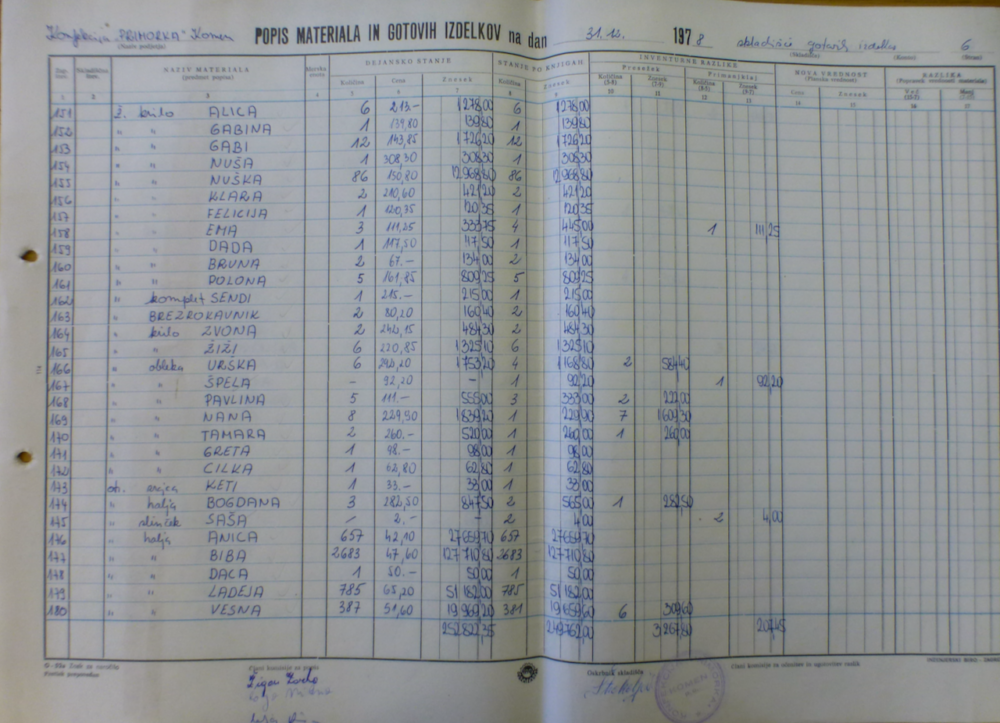 Konfekcija "PRIMORKA" Komen POPIS MATERIALA IN GOTOVIH IZDELKOV na dan 31.12. 1978 skladišče gotovih izdelkov 6
(Naziv podjetja)
NAZIV MATERIALA DEJANSKO STANJE STANJE PO KNJIGAH INVENTURNE RAZLIKE NOVA VREDNOST RAZLIKA
Količina Cena Znesek Količina Znesek Presežek Primanjkljaj
151 ž. krilo ALICA 6 213.- 1278,00 6 1278,00
152 " " GABINA 1 139,80 139,80 1 139,80
153 " " GABI 12 143,85 1726,20 12 1726,20
154 " " NUŠA 1 308,30 308,30 1 308,30
155 " " NUŠKA 86 150,80 12968,80 86 12968,80
156 " " KLARA 2 210,60 421,20 2 421,20
157 " " FELICIJA 1 120,35 120,35 1 120,35
158 " " EMA 3 111,25 333,75 4 445,00 1 111,25
159 " " DADA 1 117,50 117,50 1 117,50
160 " " BRUNA 2 67.- 134,00 2 134,00
161 " " POLONA 5 161,85 809,25 5 809,25
162 " komplet SENDI 1 215.- 215,00 1 215,00
163 " BREZROKAVNIK 2 80,20 160,40 2 160,40
164 " krilo ZVONA 2 242,15 484,30 2 484,30
165 " " ŽIŽI 6 220,85 1325,10 6 1325,10
166 " obleka URŠKA 6 292,20 1753,20 4 1168,80 2 584,40
167 " " ŠPELA - 92,20 - 1 92,20 1 92,20
168 " " PAVLINA 5 111.- 555,00 3 333,00 2 222,00
169 " " NANA 8 229,90 1839,20 1 229,90 7 1609,30
170 " " TAMARA 2 260.- 520,00 1 260,00 1 260,00
171 " " GRETA 1 98.- 98,00 1 98,00
172 " " CILKA 1 62,80 62,80 1 62,80
173 ot. KETI 1 33.- 33,00 1 33,00
174 " halja BOGDANA 3 282,50 847,50 2 565,00 1 282,50
175 " slinček SAŠA - 2.- - 2 4,00 2 4,00
176 " halja ANICA 657 42,10 27659,70 657 27659,70
177 " " BIBA 2683 47,60 127710,80 2683 127710,80
178 " " DACA 1 50.- 50,00 1 50,00
179 " " LADEJA 785 65,20 51182,00 785 51182,00
180 " " VESNA 387 51,60 19969,20 381 19659,60 6 309,60
252822,35 249762,00 3267,80 207,45